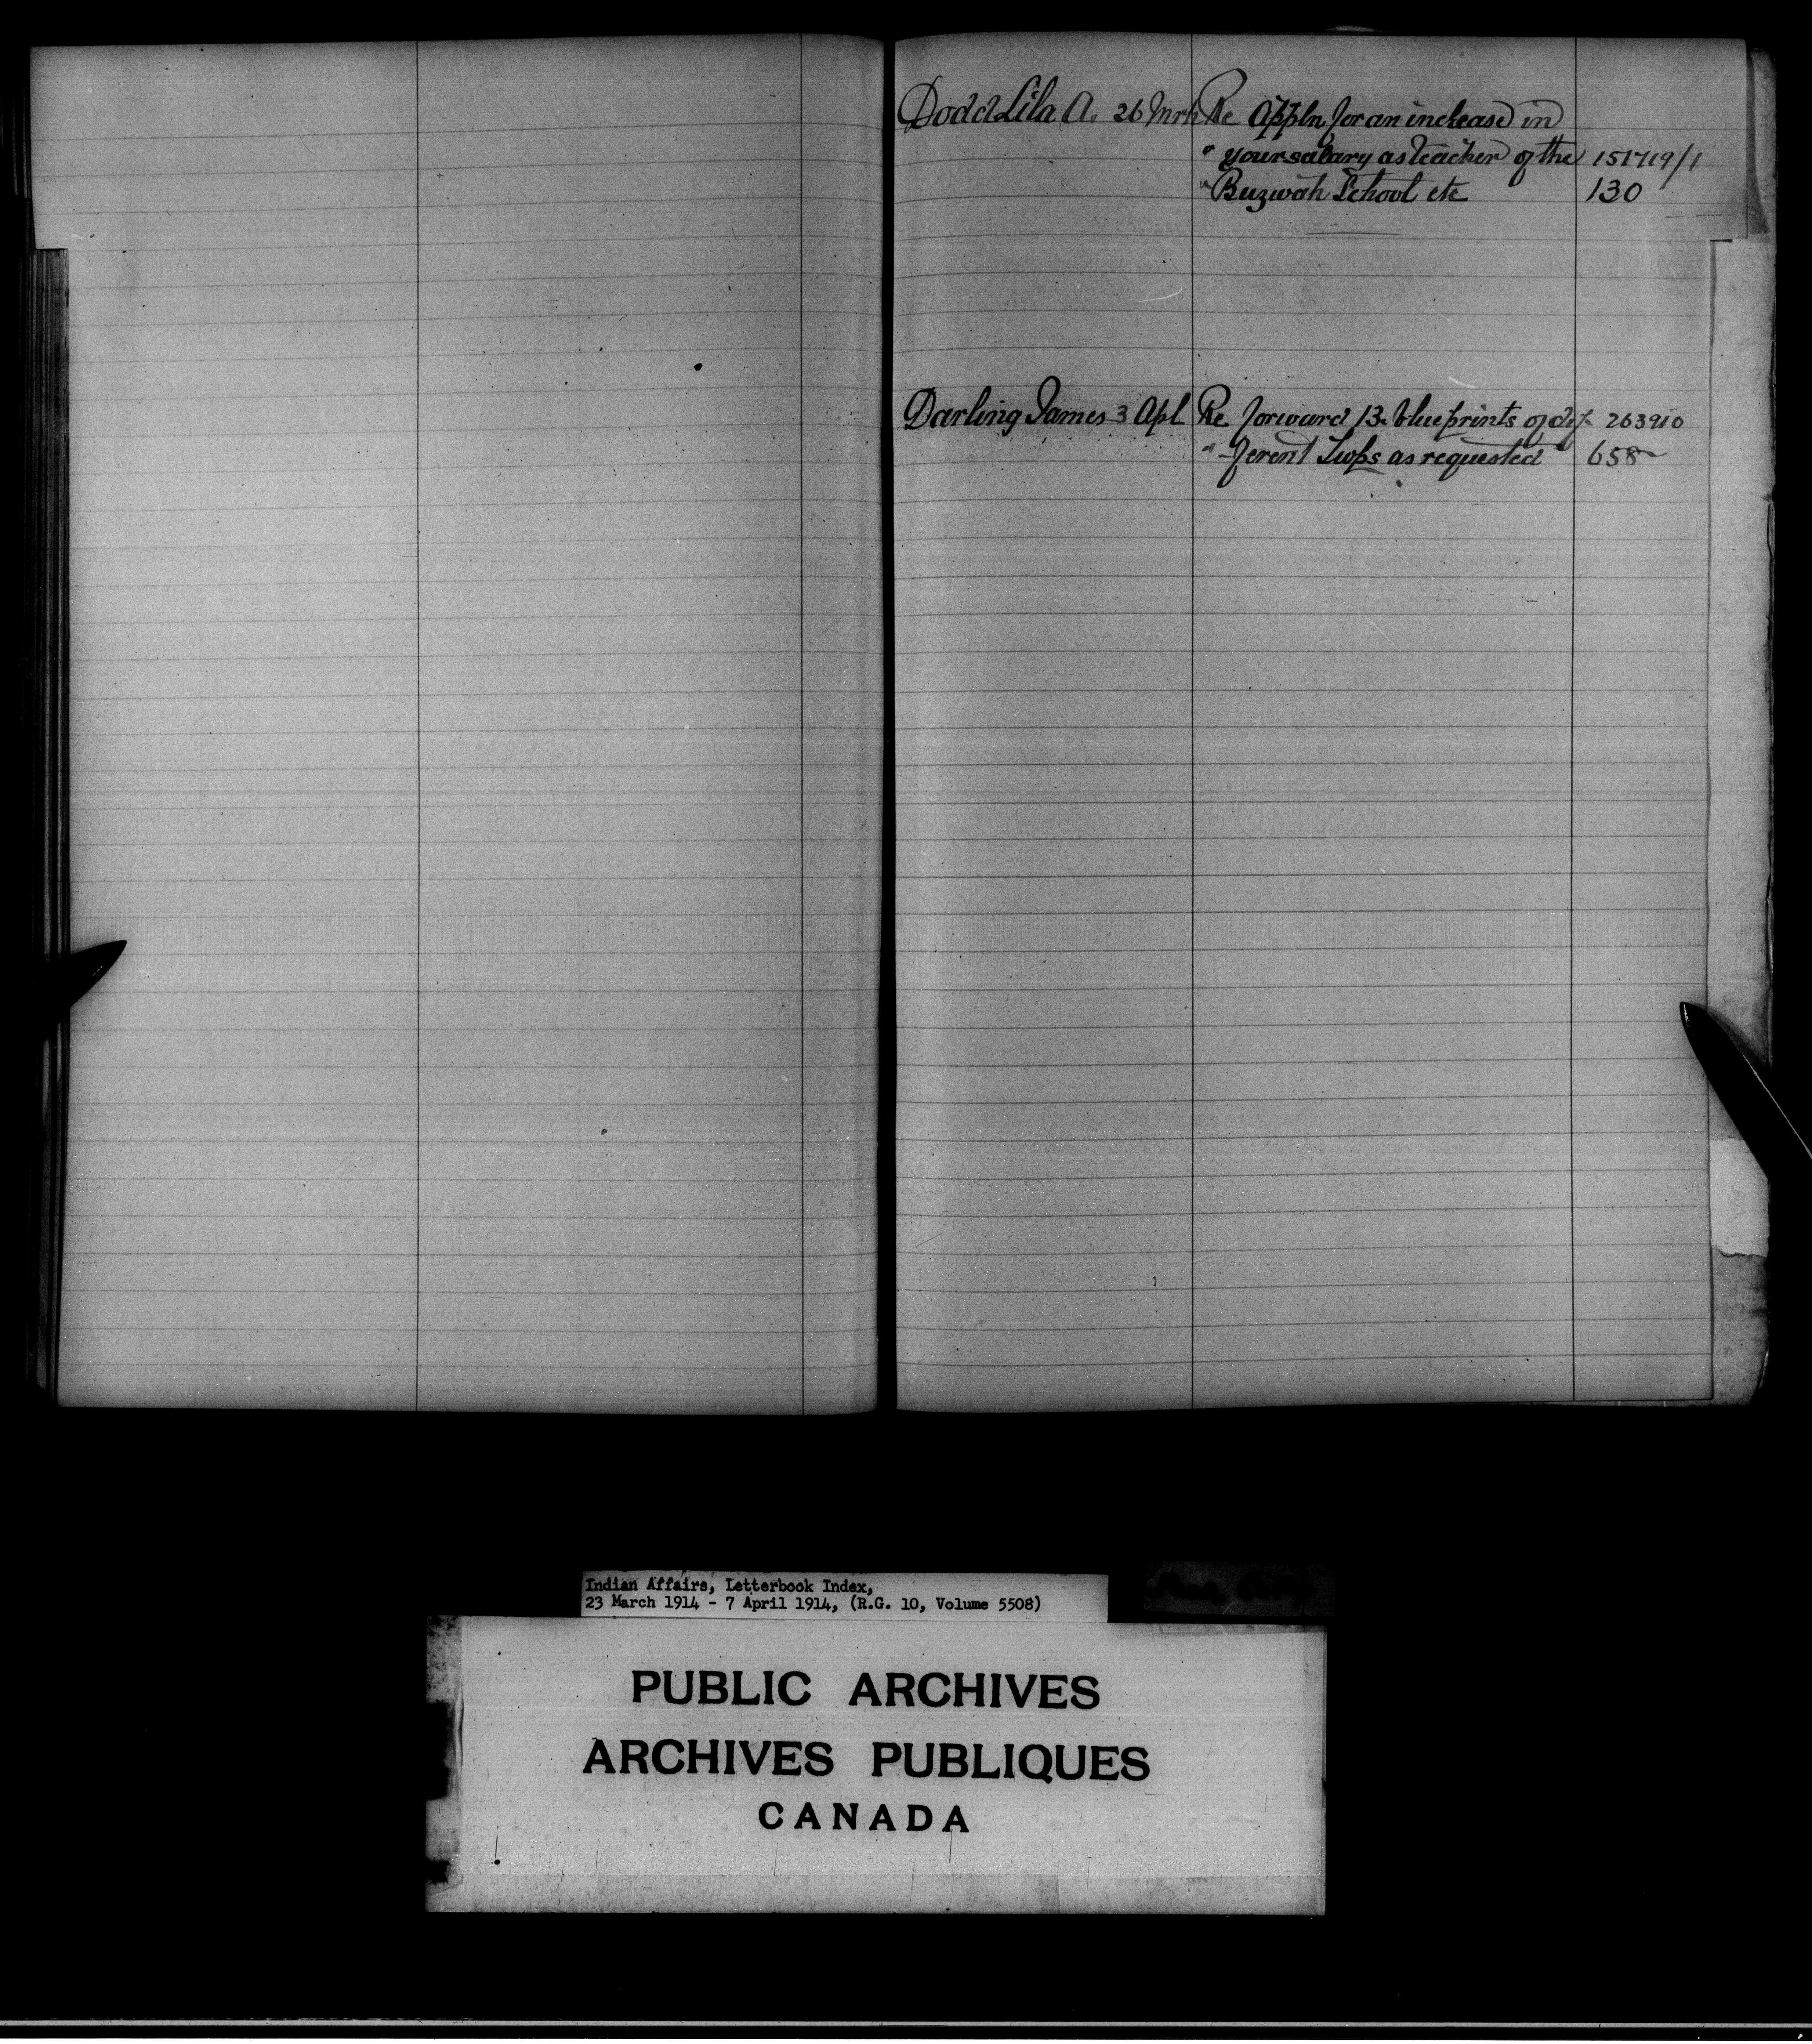 Dodd Lila A. 26 Mrh Re Appln for an increase in
" your salary as teacher of the 151719/1
" Buzwah School etc 130
Darling James 3 Apl Re forward 13 blueprints of dif- 263910
" -ferent Twps as requested 658
Indian Affairs, Letterbook Index,
23 March 1914 - 7 April 1914, (R.G. 10, Volume 5508)
PUBLIC ARCHIVES
ARCHIVES PUBLIQUES
CANADA